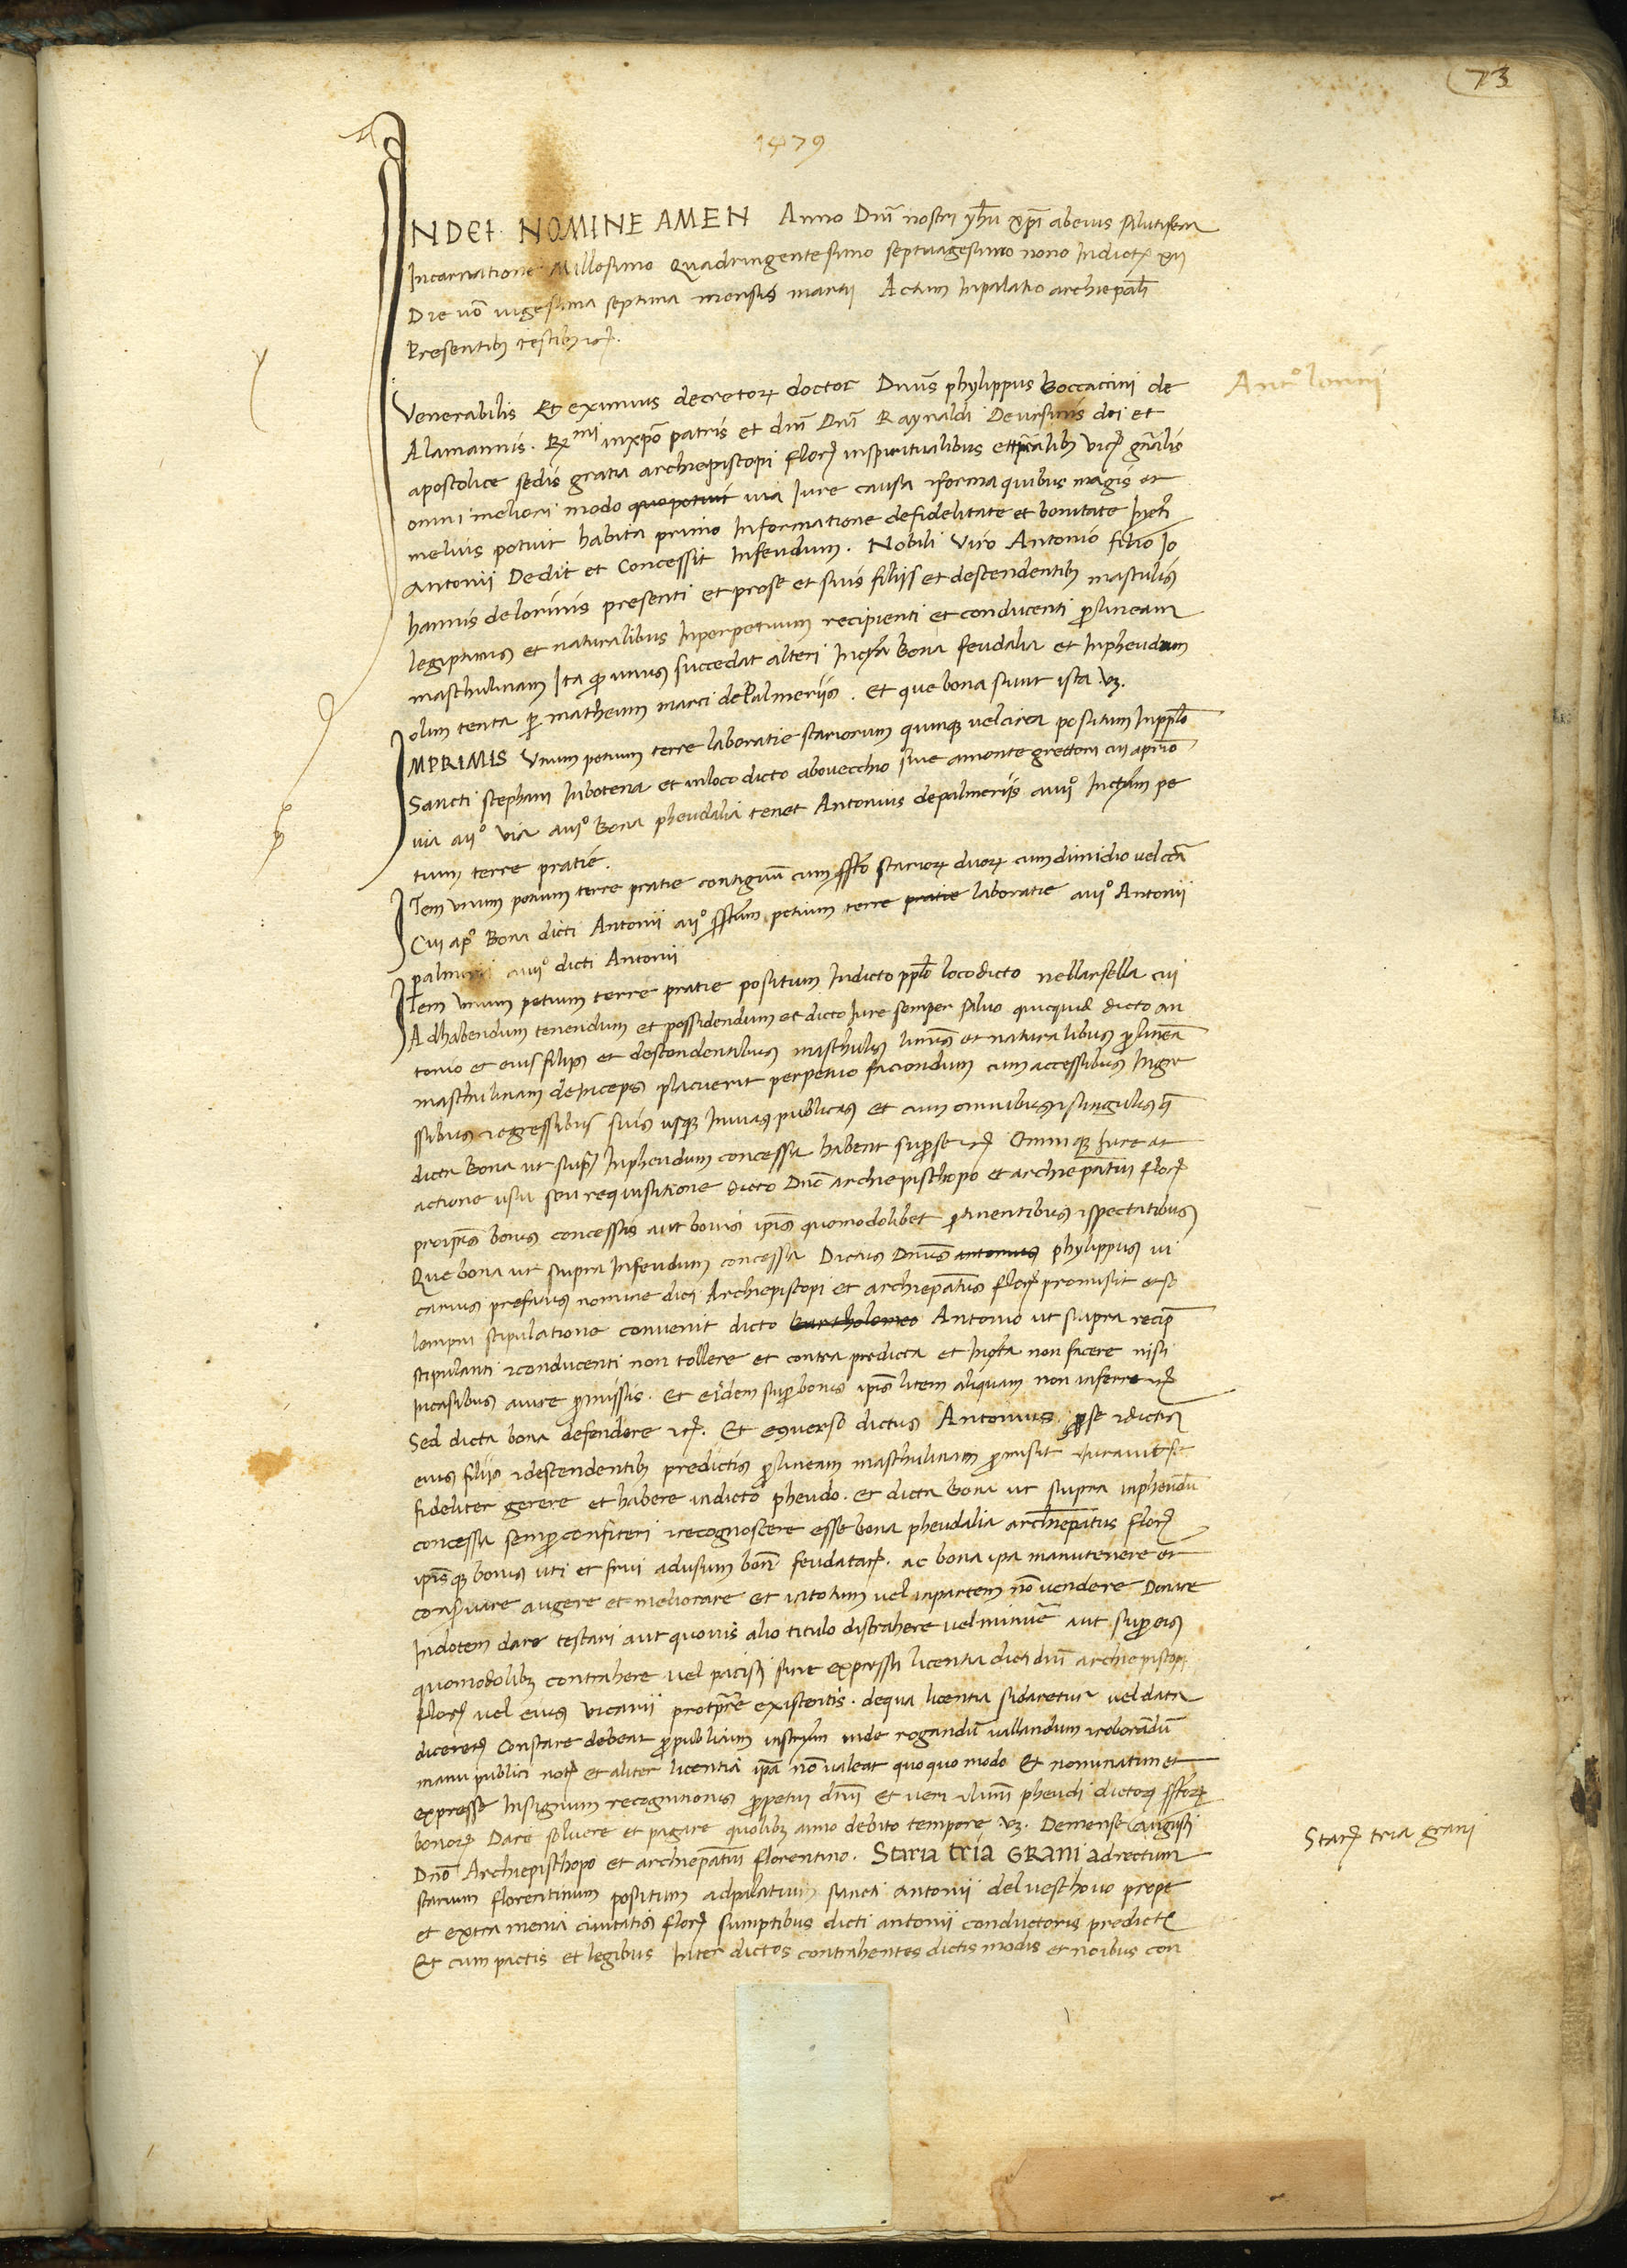 73
1479
IN DEI NOMINE AMEN Anno Dnī nostri yhū xpī abeius salutifera
Incarnatione Millesimo Quadringentesimo septuagesimo nono Indictᵉ xii
Die vō vigesima septima mensis martii Actum Inpalatio archiepali
Presentibȝ testibȝ etc̄.
Antᵒ lorini
Venerabilis Et eximius decretorȝ doctor Dnūs phylippus Boccaccini de
Alamannis. Rᵐⁱ inxpō patris et dnī Dnī Raynaldi Deursinis dei et
apostolice sedis gratia archiepiscopi florȝ inspiritualibus et tpralibȝ vicȝ gnālis
omni meliori modo quo potuit via Iure causa et forma quibus magis et
melius potuit habita primo Informatione defidelitate et bonitate
Antonii Dedit et Concessit Infeudum. Nobili viro Antonio filio Io
hannis delorinis presenti et prose et suis filiis et descendentibȝ masculis
legiptimis et naturalibus Inperpetuum recipienti et conducenti p lineam
maschulinam Ita q unus succedat alteri Infra bona feudalia et Inpheudum
olim tenta p matheum marci dePalmeriis. Et que bona sunt ista vȝ.
IMPRIMIS Unum petium terre laboratie stariorum quinqȝ velcirca positum Inpplo
Sancti stephani Inbotena et inloco dicto abovecchio sive amonte grettoni cui aprimo
via aijᵒ via aiijᵒ Bona pheudalia tenet Antonius depalmeriis aiiijᵒ Infrascm pe
tium terre pratie.
Item Unum petium terre pratie contiguū cum sstō stariorȝ duorȝ cum dimidio vel cca
Cui apᵒ Bona dicti Antonii aijᵒ sstum petium terre pratie laboratie aiijᵒ Antonii
palmerii aiiijᵒ dicti Antonii
Item Unum petium terre pratie positum Indicto pplo locodicto nellarsella cui
Adhabendum tenendum et possidendum et dicto Iure semper salvo quicquid dicto an
tonio et eius filiis et descendentibus maschulis et naturalibus p lineā
maschulinam deinceps placuerit perpetuo faciendum cum accessibus Ingre
ssibus et egressibus suis usqȝ Invias publicas et cum omnibus et singulis q̄
dicta Bona ut supȝ Inpheudum concessa habent supse etc̄ Omniqȝ Iure at
actione usu seu requisitione dicto Dnō archiepischopo et archiepatui florȝ
proipsis bonis concessis aut bonis ipsis quomodolibet ptinentibus et spectatibus
Que bona ut supra Infeudum concessa Dictus Dnūs antonius phylippus vi
carius prefatus nomine dicti Archiepiscopi et archiepatus florȝ promisit et so
lempni stipulatione convenit dicto Bartholomeo Antonio ut supra recip
stipulanti et conducenti non tollere et contra predicta et Infra non facere nisi
Incasibus aiure pmissis. Et eidem sup bonis ipsis litem aliquam non inferre etc̄
Sed dicta bona defendere etc̄. Et eqverso dictus Antonius pse et dictis
eius filiis et descendentibȝ predictis p lineam maschulinam pmisit et iuravit se
fideliter gerere et habere indicto pheudo. et dicta bona ut supra inpheudū
concessa semp confiteri et recognoscere esse bona pheudalia archiepatus florȝ
ipsisqȝ bonis uti et frui adusum boni feudatarȝ. ac bona ipsa manutenere et
conservare augere et meliorare et intotum vel inpartem nō vendere Donare
Indotem dare testari aut quovis alio titulo distrahere vel minue aut sup eis
quomodolibȝ contrahere vel pacisci sine expressa licentia dicti dnī archiepiscopi
florȝ vel eius vicarii protpre existentis. dequa licentia sidaretur vel data
diceretȝ Constare debeat p publicum instrȝm inde rogandū vallandum et roborandū
manu publici notȝ et aliter licentia ipā nō valeat quoquo modo Et nominatim et
expresse Insignum recognitionis ppetui dnii et veri pheudi dictorȝ sstorȝ
bonorȝ Dare solvere et pagare quolibȝ anno debito tempore vȝ. Demense Augusti
Dnō Archiepischopo et archiepatui florentino. Staria tria GRANI adrectum
Starȝ tria grani
starium florentinum positum adpalatium sancti antonii delveschovo prope
et extra menia civitatis florȝ sumptibus dicti antonii conductoris predictȝ
Et cum pactis et legibus Inter dictos contrahentes dictis modis et noibus con